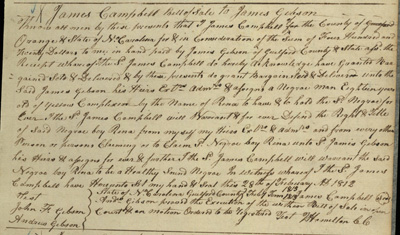 James Campbell Bill of Sale to James Gibson
Know all men by these presents that I James Campbell for the County of Guilford
& State of No. Carolina for & in Consideration of the Sum of Four Hundred and
Twenty Dollars to me in hand paid by James Gibson of Guilford County & State afsd. the
Receipt whereof the Sd. James Campbell do hereby acknowledge have Granted Bar
gained Sold & Delivered & by these presents do grant Bargain Sell & Deliver unto the
Said James Gibson his Heirs Exts. Admrs. & assigns a Negroe Man Eighteen years
of yellows Complexion by the Name of Rena to have & to hold the Sd. Negroe for
Ever I the Sd. James Campbell will Warrant & for ever Defend the Right & Title
of Said Negroe boy Rena from myself my Heirs Exts. & Admrs. and from every other
Person or persons Claiming or to Claim Sd. Negroe boy Rena unto Sd. James Gibson
his Heirs & assigns for ever & further I the Sd. James Campbell will warrant the Said
Negroe boy Rena to be a Healthy Sound Negroe In witness whereof I the Sd. James
Campbell have Hereunto Set my hand & Seal this 28th of February AD 1812
Test State of No. Carolina Guilford County James Campbell
John F. Gibson Andw. Gibson proved the Execution of the within Bill of Sale in open
Andrew Gibson Court & on motion Ordered to be Registered Test Hamilton CC